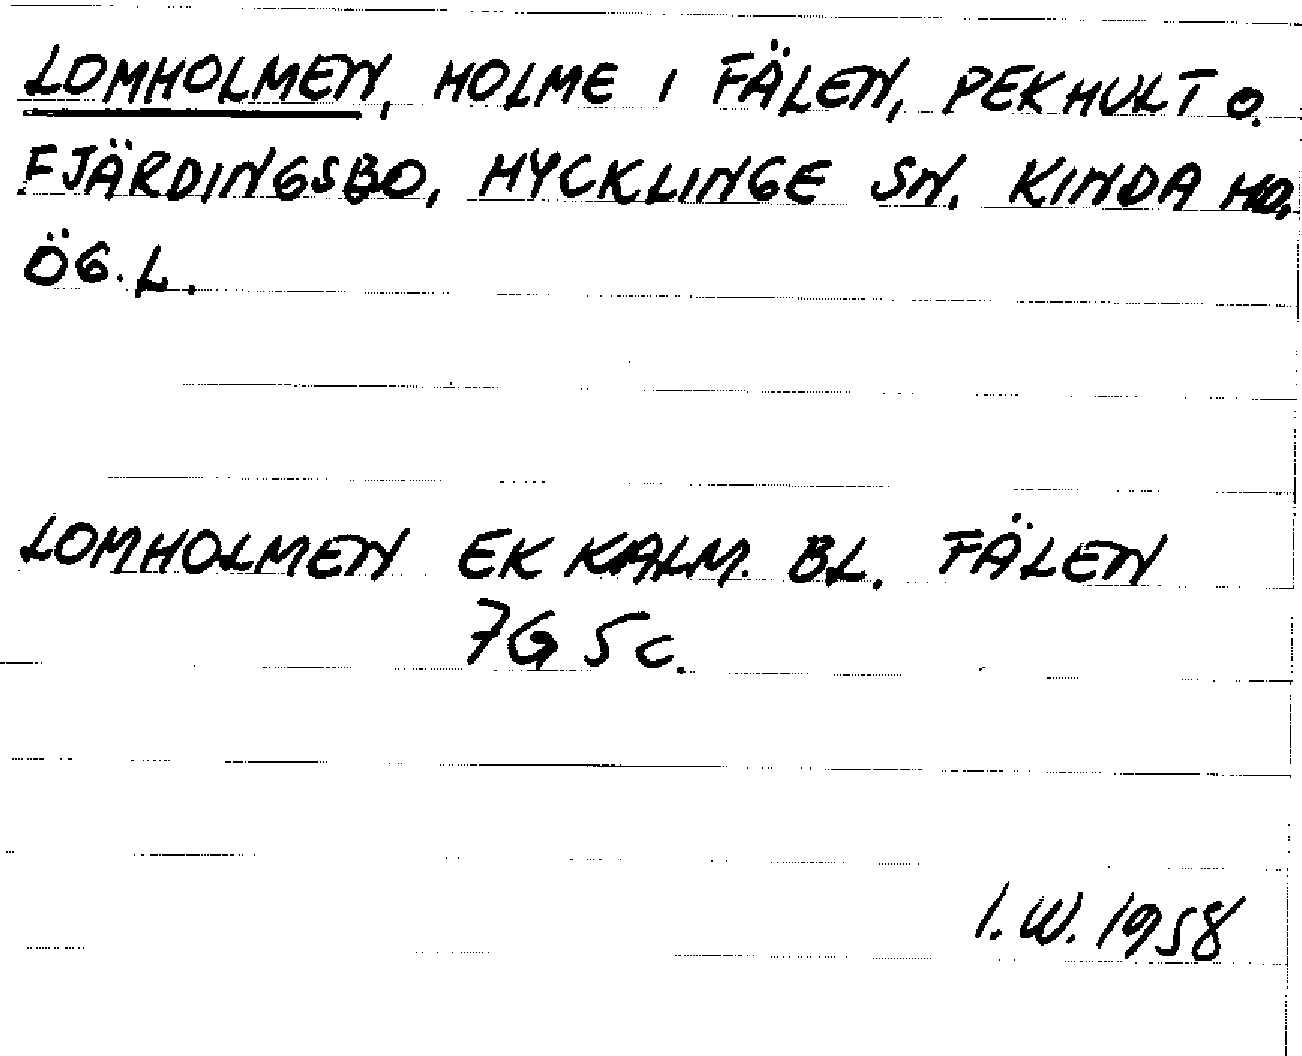 LOMHOLMEN, HOLME I FÄLEN, PEKHULT O.
FJÄRDINGSBO, HYCKLINGE SN. KINDA HD.
ÖG. L.
LOMHOLMEN EK KALM. BL. FÄLEN
7G 5c.
I. W. 1958